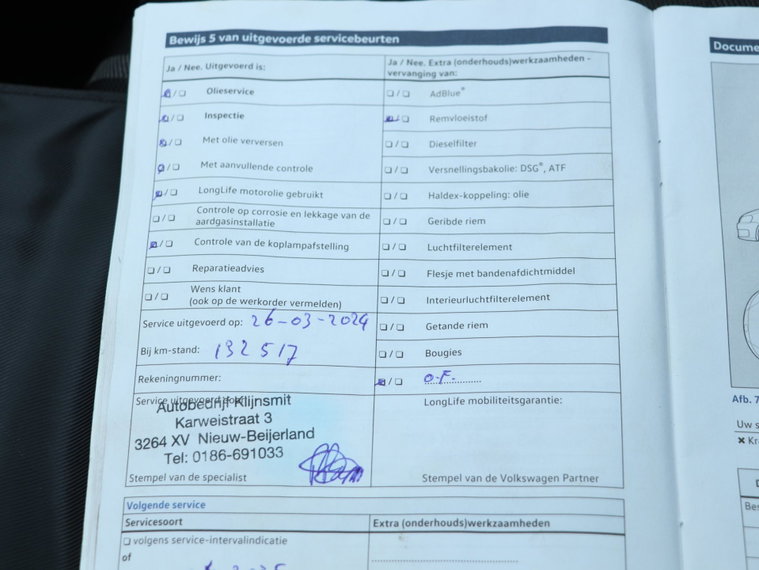 Bewijs 5 van uitgevoerde servicebeurten
Ja / Nee. Uitgevoerd is:
Ja / Nee. Extra (onderhouds)werkzaamheden -
vervanging van:
Olieservice
AdBlue®
Inspectie
Remvloeistof
Met olie verversen
Dieselfilter
Met aanvullende controle
Versnellingsbakolie: DSG®, ATF
LongLife motorolie gebruikt
Haldex-koppeling: olie
Controle op corrosie en lekkage van de
aardgasinstallatie
Geribde riem
Controle van de koplampafstelling
Luchtfilterelement
Reparatieadvies
Flesje met bandenafdichtmiddel
Wens klant
(ook op de werkorder vermelden)
Interieurluchtfilterelement
Service uitgevoerd op: 26-03-2024
Getande riem
Bij km-stand: 132517
Bougies
Rekeningnummer:
O.F.
Service uitgevoerd door:
Autobedrijf Klijnsmit
Karweistraat 3
3264 XV Nieuw-Beijerland
Tel: 0186-691033
Stempel van de specialist
LongLife mobiliteitsgarantie:
Stempel van de Volkswagen Partner
Volgende service
Servicesoort
Extra (onderhouds)werkzaamheden
volgens service-intervalindicatie
of
Docume
Afb. 7
Uw s
Kr
D
Bes